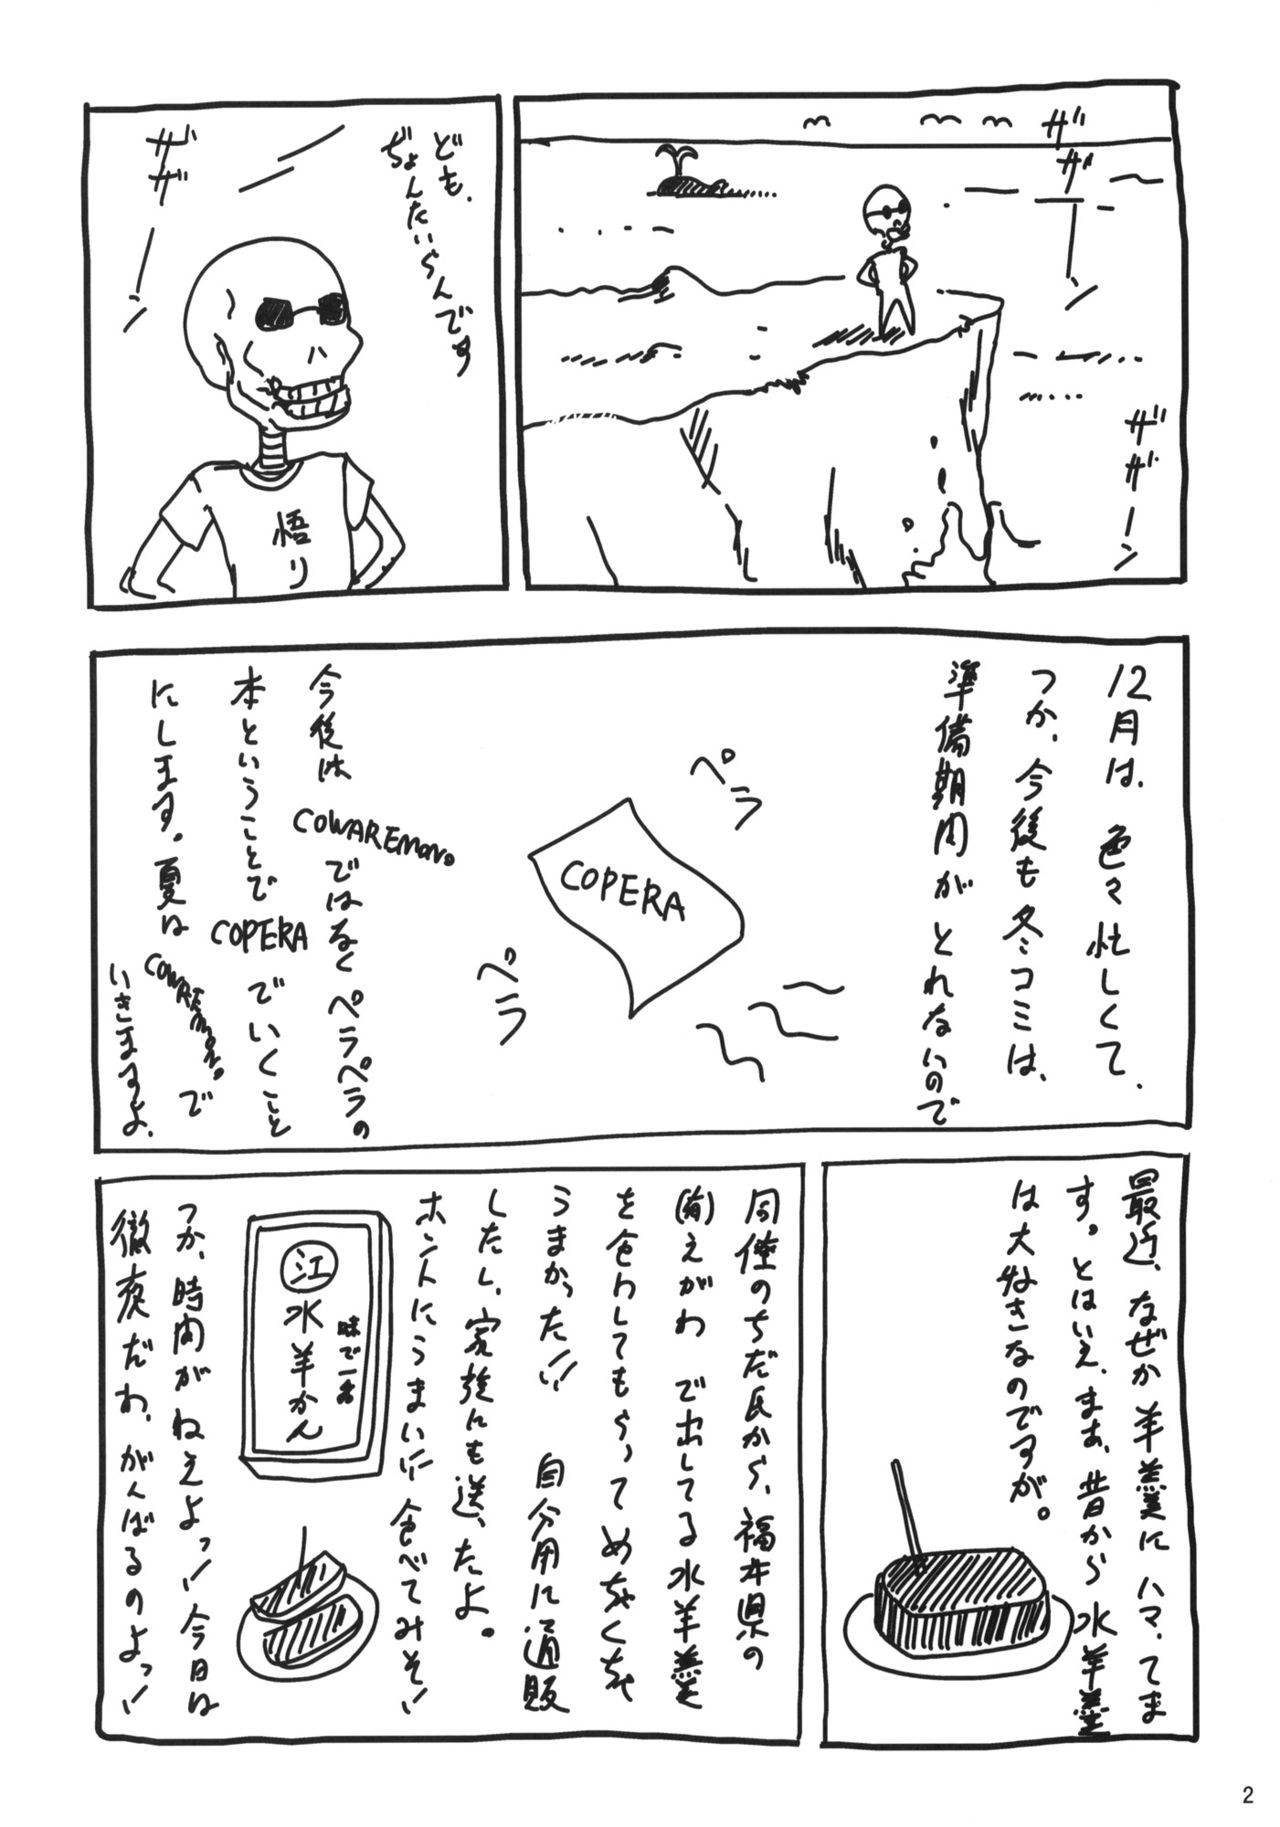 ザザーン
ザザーン
ども、
ぢょんたいらんです
ザザーン
悟り
12月は、色々忙しくて、
つか、今後も冬コミは、
準備期間がとれないので
ペラ
COPERA
ペラ
今後はCOWAREMONO。ではなくペラペラの
本ということでCOPERAでいくこと
にします。夏はCOWAREMONO。で
いきますよ、
最近、なぜか羊羹にハマってま
す。とはいえ、まあ、昔から水羊羹
は大好きなのですが。
同僚のちだ氏から、福井県の
(有)えがわで出してる水羊羹
を食わしてもらってめちゃくちゃ
うまかった!!自分用に通販
したし、家族にも送ったよ。
ホントにうまい!!食べてみそ!!
江
水羊かん
味で一番
つか、時間がねえよっ!!今日は
徹夜だわ、がんばるのよっ!!
2